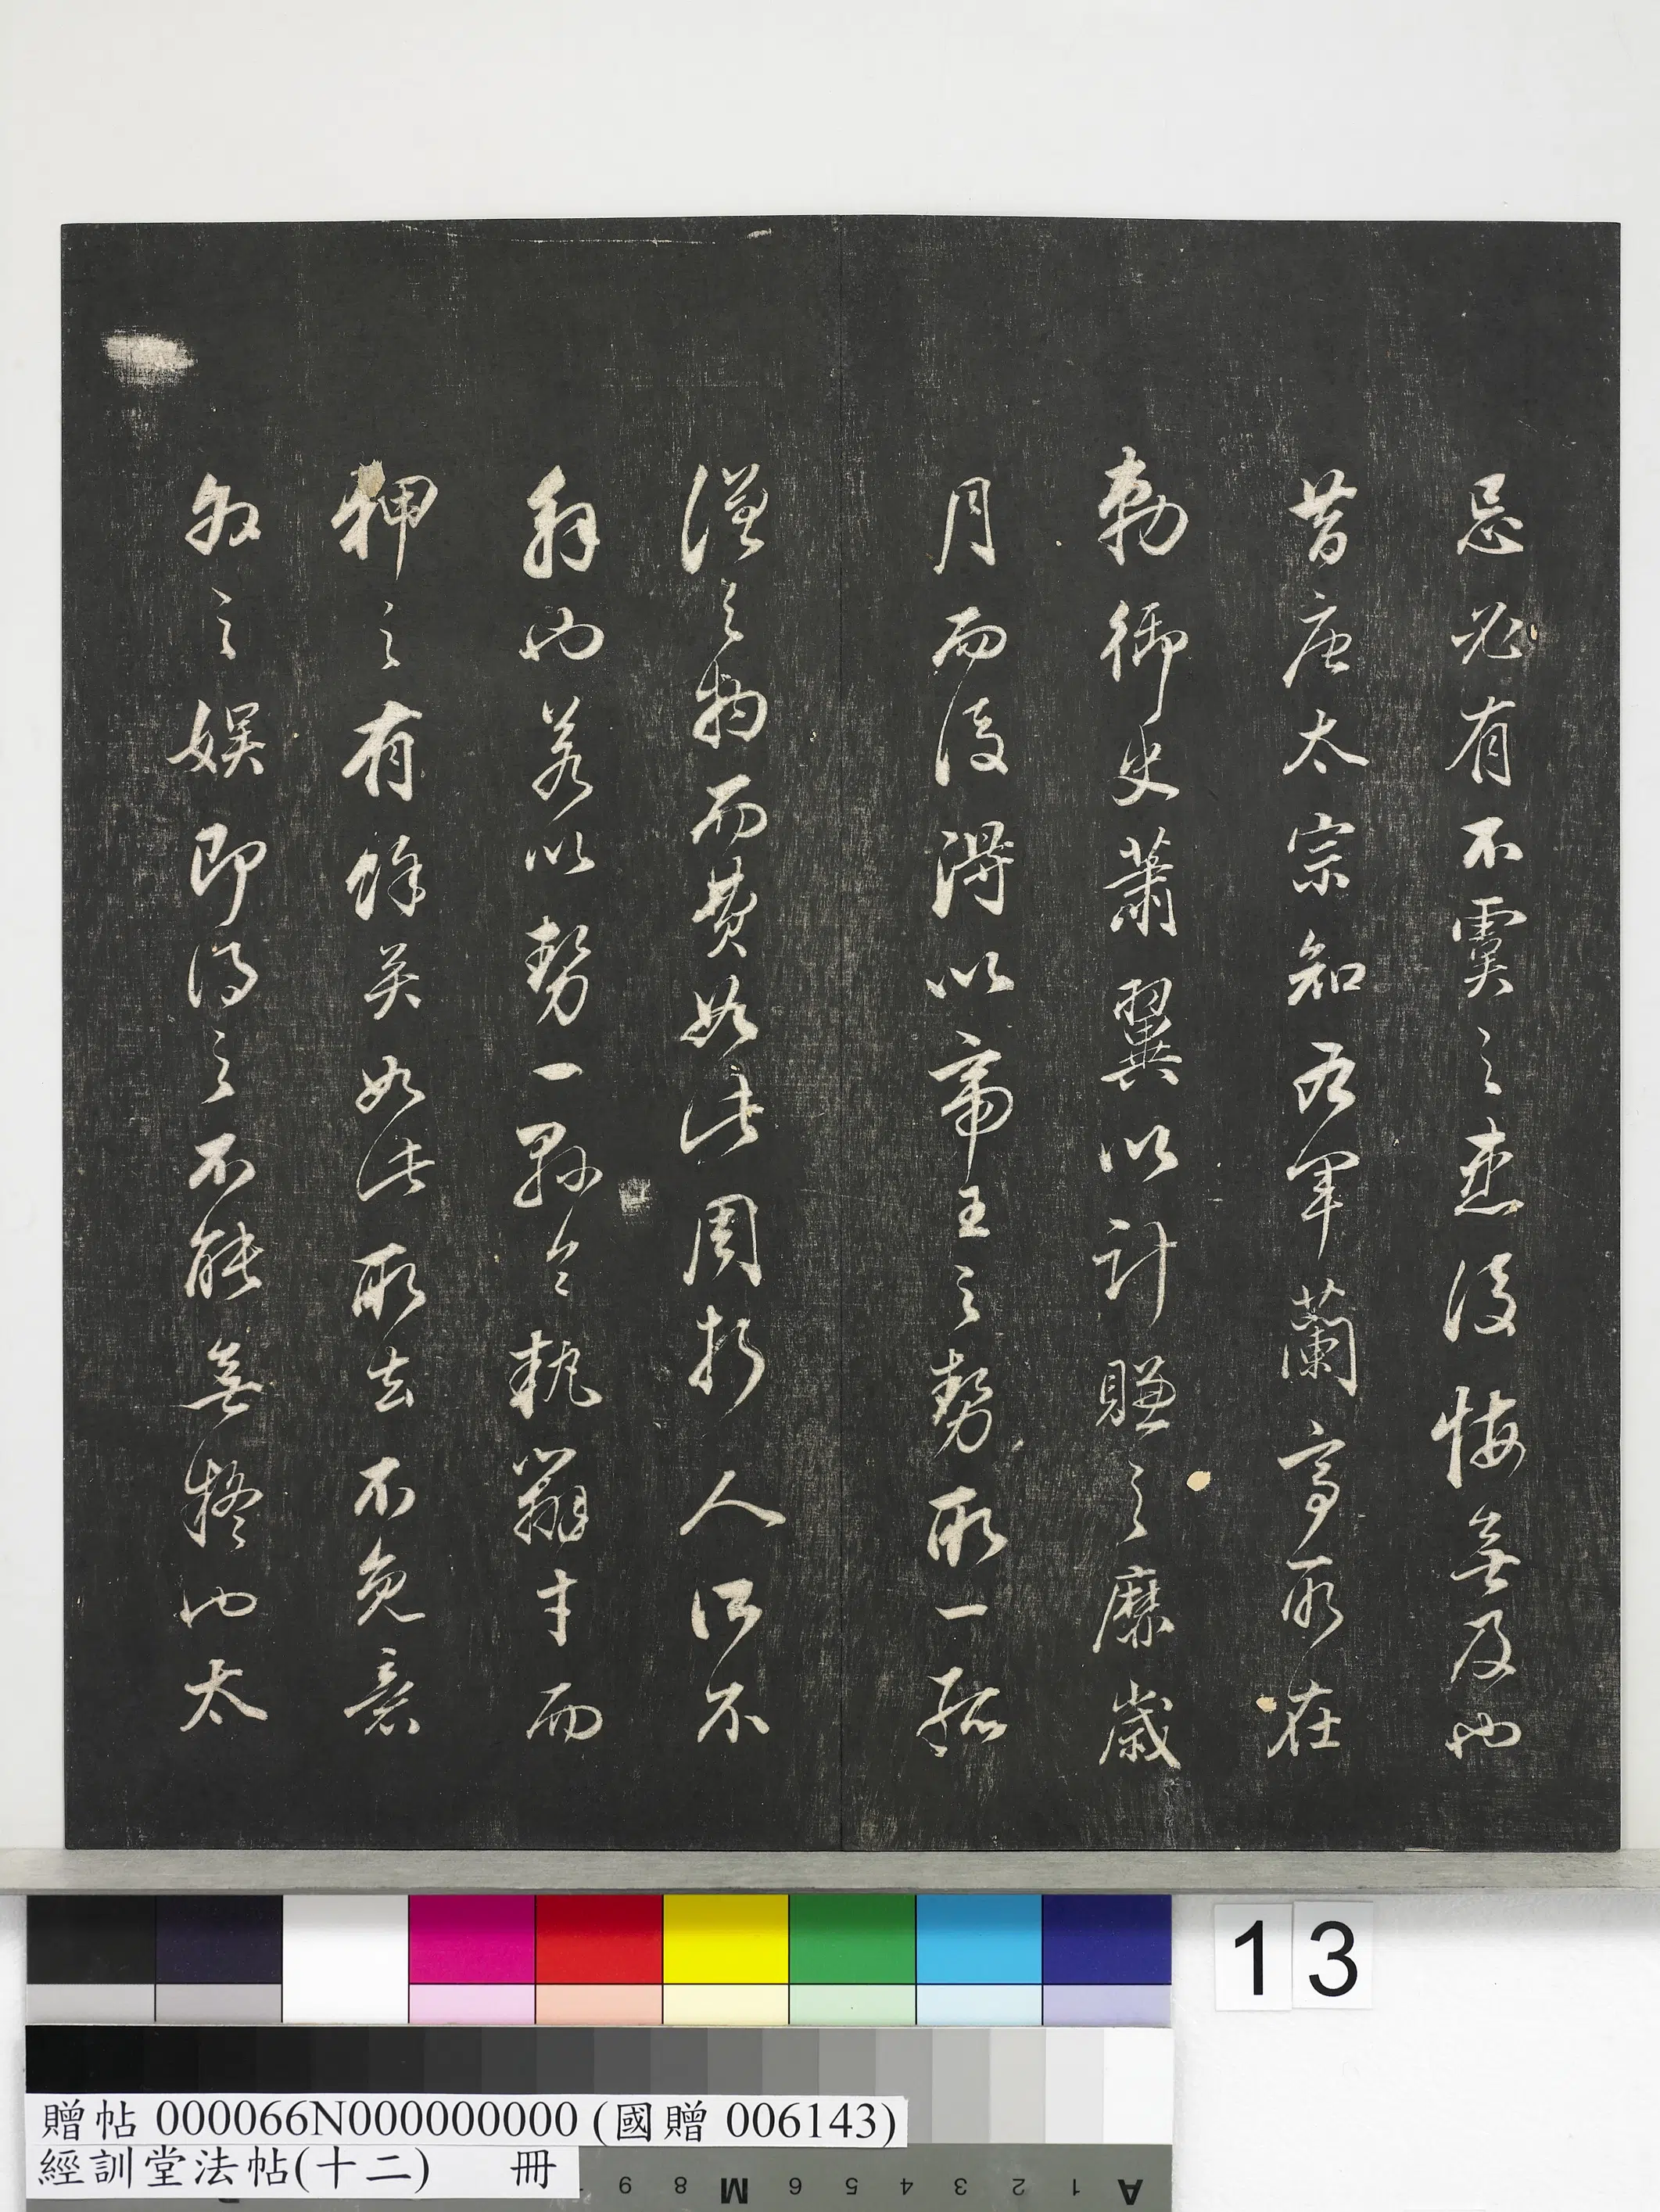 忌必有不虞之患後悔無及也
昔唐太宗知右軍蘭亭所在
勅御史蕭翼以計賺之靡歲
月而後得以帝王之勢取一孤
僧之物而費如此周折人所不
解也若以勢一縣令執辯才而
押之有餘矣如此取去不免
之娛即得之不能無也太
13
贈帖 000066N000000000 (國贈 006143)
經訓堂法帖(十二) 冊